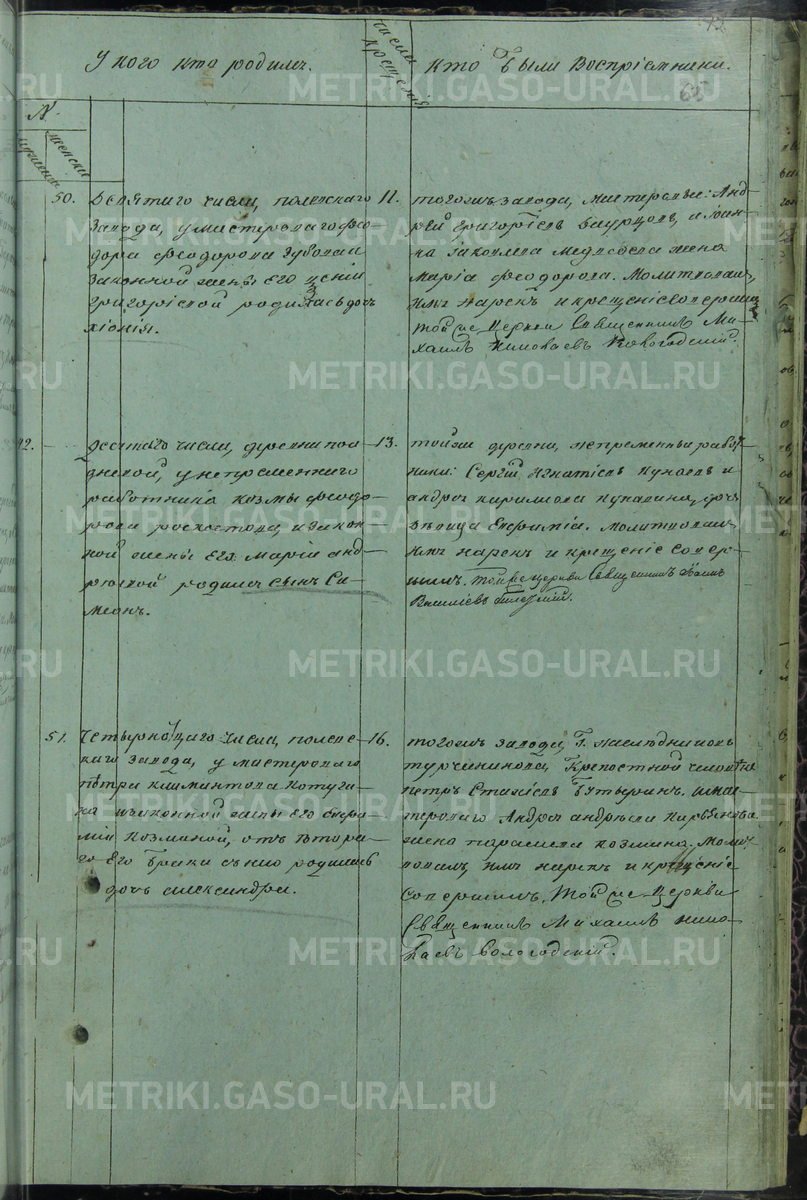 У кого кто родился.
числа крещенія
кто были Воспріемники.
65
N.
мужеска
женска
50.
Девятаго числа, полевскаго
завода, у мастероваго фео-
дора феодорова
законной жены его
григоріевой родилась дочь
хіонія.
11.
тогожъ завода, мастеровые: Анд-
рей григоріевъ и Іоан-
на жена
Марія феодорова. Молитвовалъ,
имя нарекъ и крещеніе совершилъ
тойже церкви Священникъ Ми-
хаилъ Николаевъ Вологодскій.
42.
Десятаго числа, деревни пол-
дневой, у непременнаго
работника козмы феодо-
рова и закон-
ной жены его Маріи анд-
реевой родился сынъ Си-
меонъ.
13.
тойже деревни, непременные работ-
ники: Сергій Игнатіевъ и
андрея кирилова дочь
девица Евфимія. Молитвовалъ
имя нарекъ и крещеніе совер-
шилъ той же церкви Священникъ Іоаннъ
Василіевъ
51.
Четырнадцатаго числа, полевс-
каго завода, у мастероваго
петра климантова
законной жены его
козминой, отъ втора-
го его брака с нею родилась
дочь александра.
16.
тогожъ завода, Г. наследниковъ
турчанинова, Крепостной человекъ
петръ и мас-
тероваго Андрея андреева
жена парасковья козмина. Молит-
вовалъ, имя нарекъ и крещеніе
совершилъ, Той же церкви
Священникъ Михаилъ нико-
лаевъ вологодскій.
METRIKI.GASO-URAL.RU